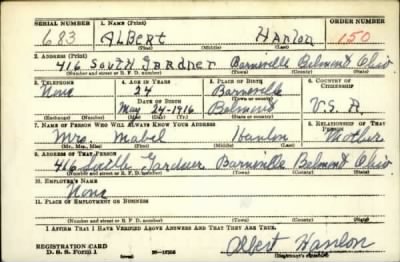 SERIAL NUMBER 1. NAME (Print) ORDER NUMBER
683 ALBERT HANLON 150
(First) (Middle) (Last)
2. ADDRESS (Print)
416 SOUTH GARDNER Barnesville Belmont Ohio
(Number and street or R. F. D. number) (Town) (County) (State)
3. TELEPHONE 4. AGE IN YEARS 5. PLACE OF BIRTH 6. COUNTRY OF CITIZENSHIP
None 24 Barnesville
DATE OF BIRTH (Town or county)
May 24-1916 Belmont U.S.A.
(Mo.) (Day) (Yr.) (State or country)
7. NAME OF PERSON WHO WILL ALWAYS KNOW YOUR ADDRESS 8. RELATIONSHIP OF THAT PERSON
Mrs. Mabel Hanlon Mother
(Mr., Mrs., Miss) (First) (Middle) (Last)
9. ADDRESS OF THAT PERSON
416 South Gardner Barnesville Belmont Ohio
(Number and street or R. F. D. number) (Town) (County) (State)
10. EMPLOYER'S NAME
None
11. PLACE OF EMPLOYMENT OR BUSINESS
(Number and street or R. F. D. number) (Town) (County) (State)
I AFFIRM THAT I HAVE VERIFIED ABOVE ANSWERS AND THAT THEY ARE TRUE.
REGISTRATION CARD
D. S. S. FORM 1 Albert Hanlon
(Registrant's signature)